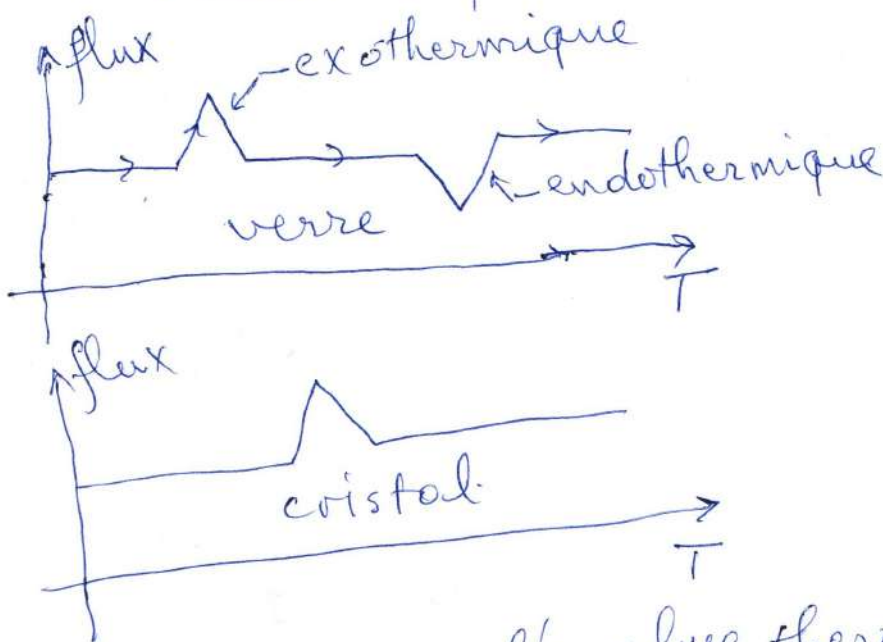 flux
exothermique
endothermique
verre
T
flux
cristal
T